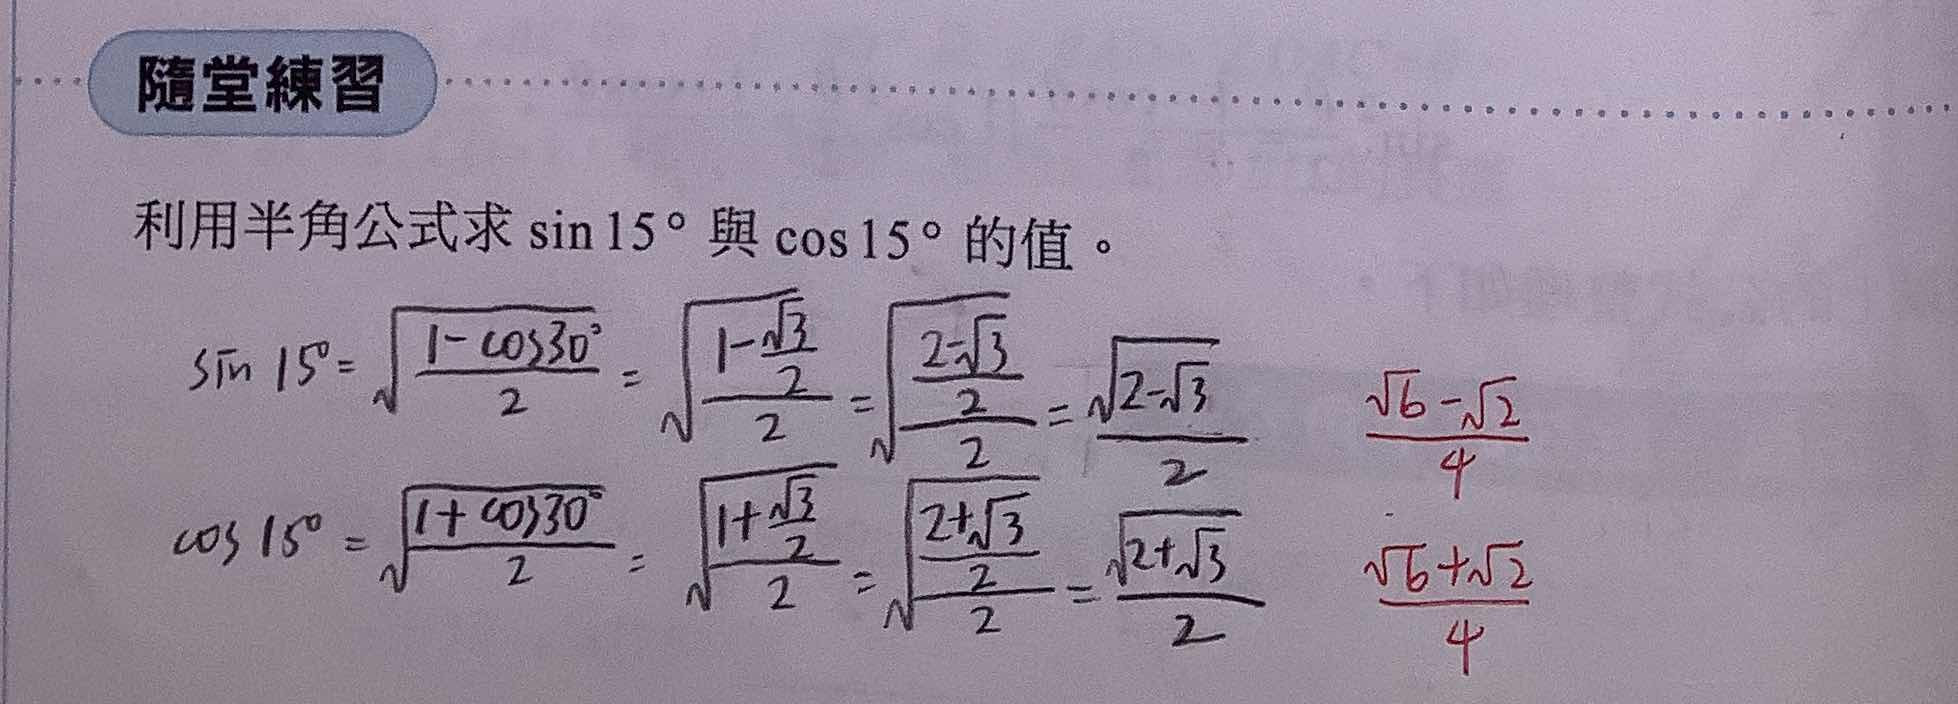 隨堂練習
利用半角公式求 sin 15° 與 cos 15° 的值。
sin 15° = √((1-cos30°)/2) = √((1-√3/2)/2) = √(((2-√3)/2)/2) = √(2-√3)/2 (√6-√2)/4
cos 15° = √((1+cos30°)/2) = √((1+√3/2)/2) = √(((2+√3)/2)/2) = √(2+√3)/2 (√6+√2)/4